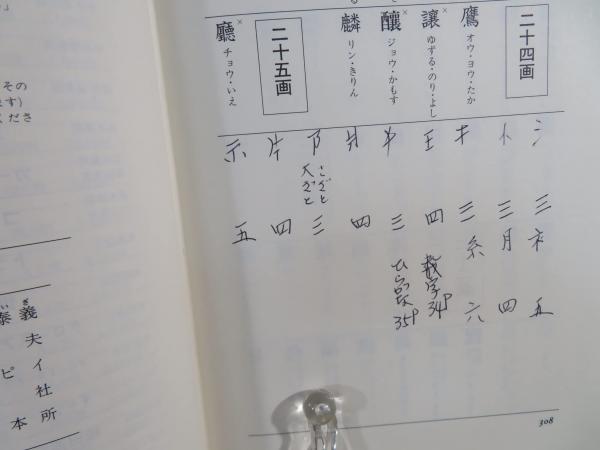 二十四画
鷹 オウ・ヨウ・たか
讓× ゆずる・のり・よし
釀× ジョウ・かもす
麟 リン・きりん
二十五画
廳× チョウ・いえ
氵 三 ネ 五
忄 三 月 四
扌 三 糸 六
王 四 数字 34P
三 ひらがな 35P
四
阝 こざと 大ざと 三
片 四
示 五
308
その
ます)
くださ
泰義
夫
ピイ
社
本所